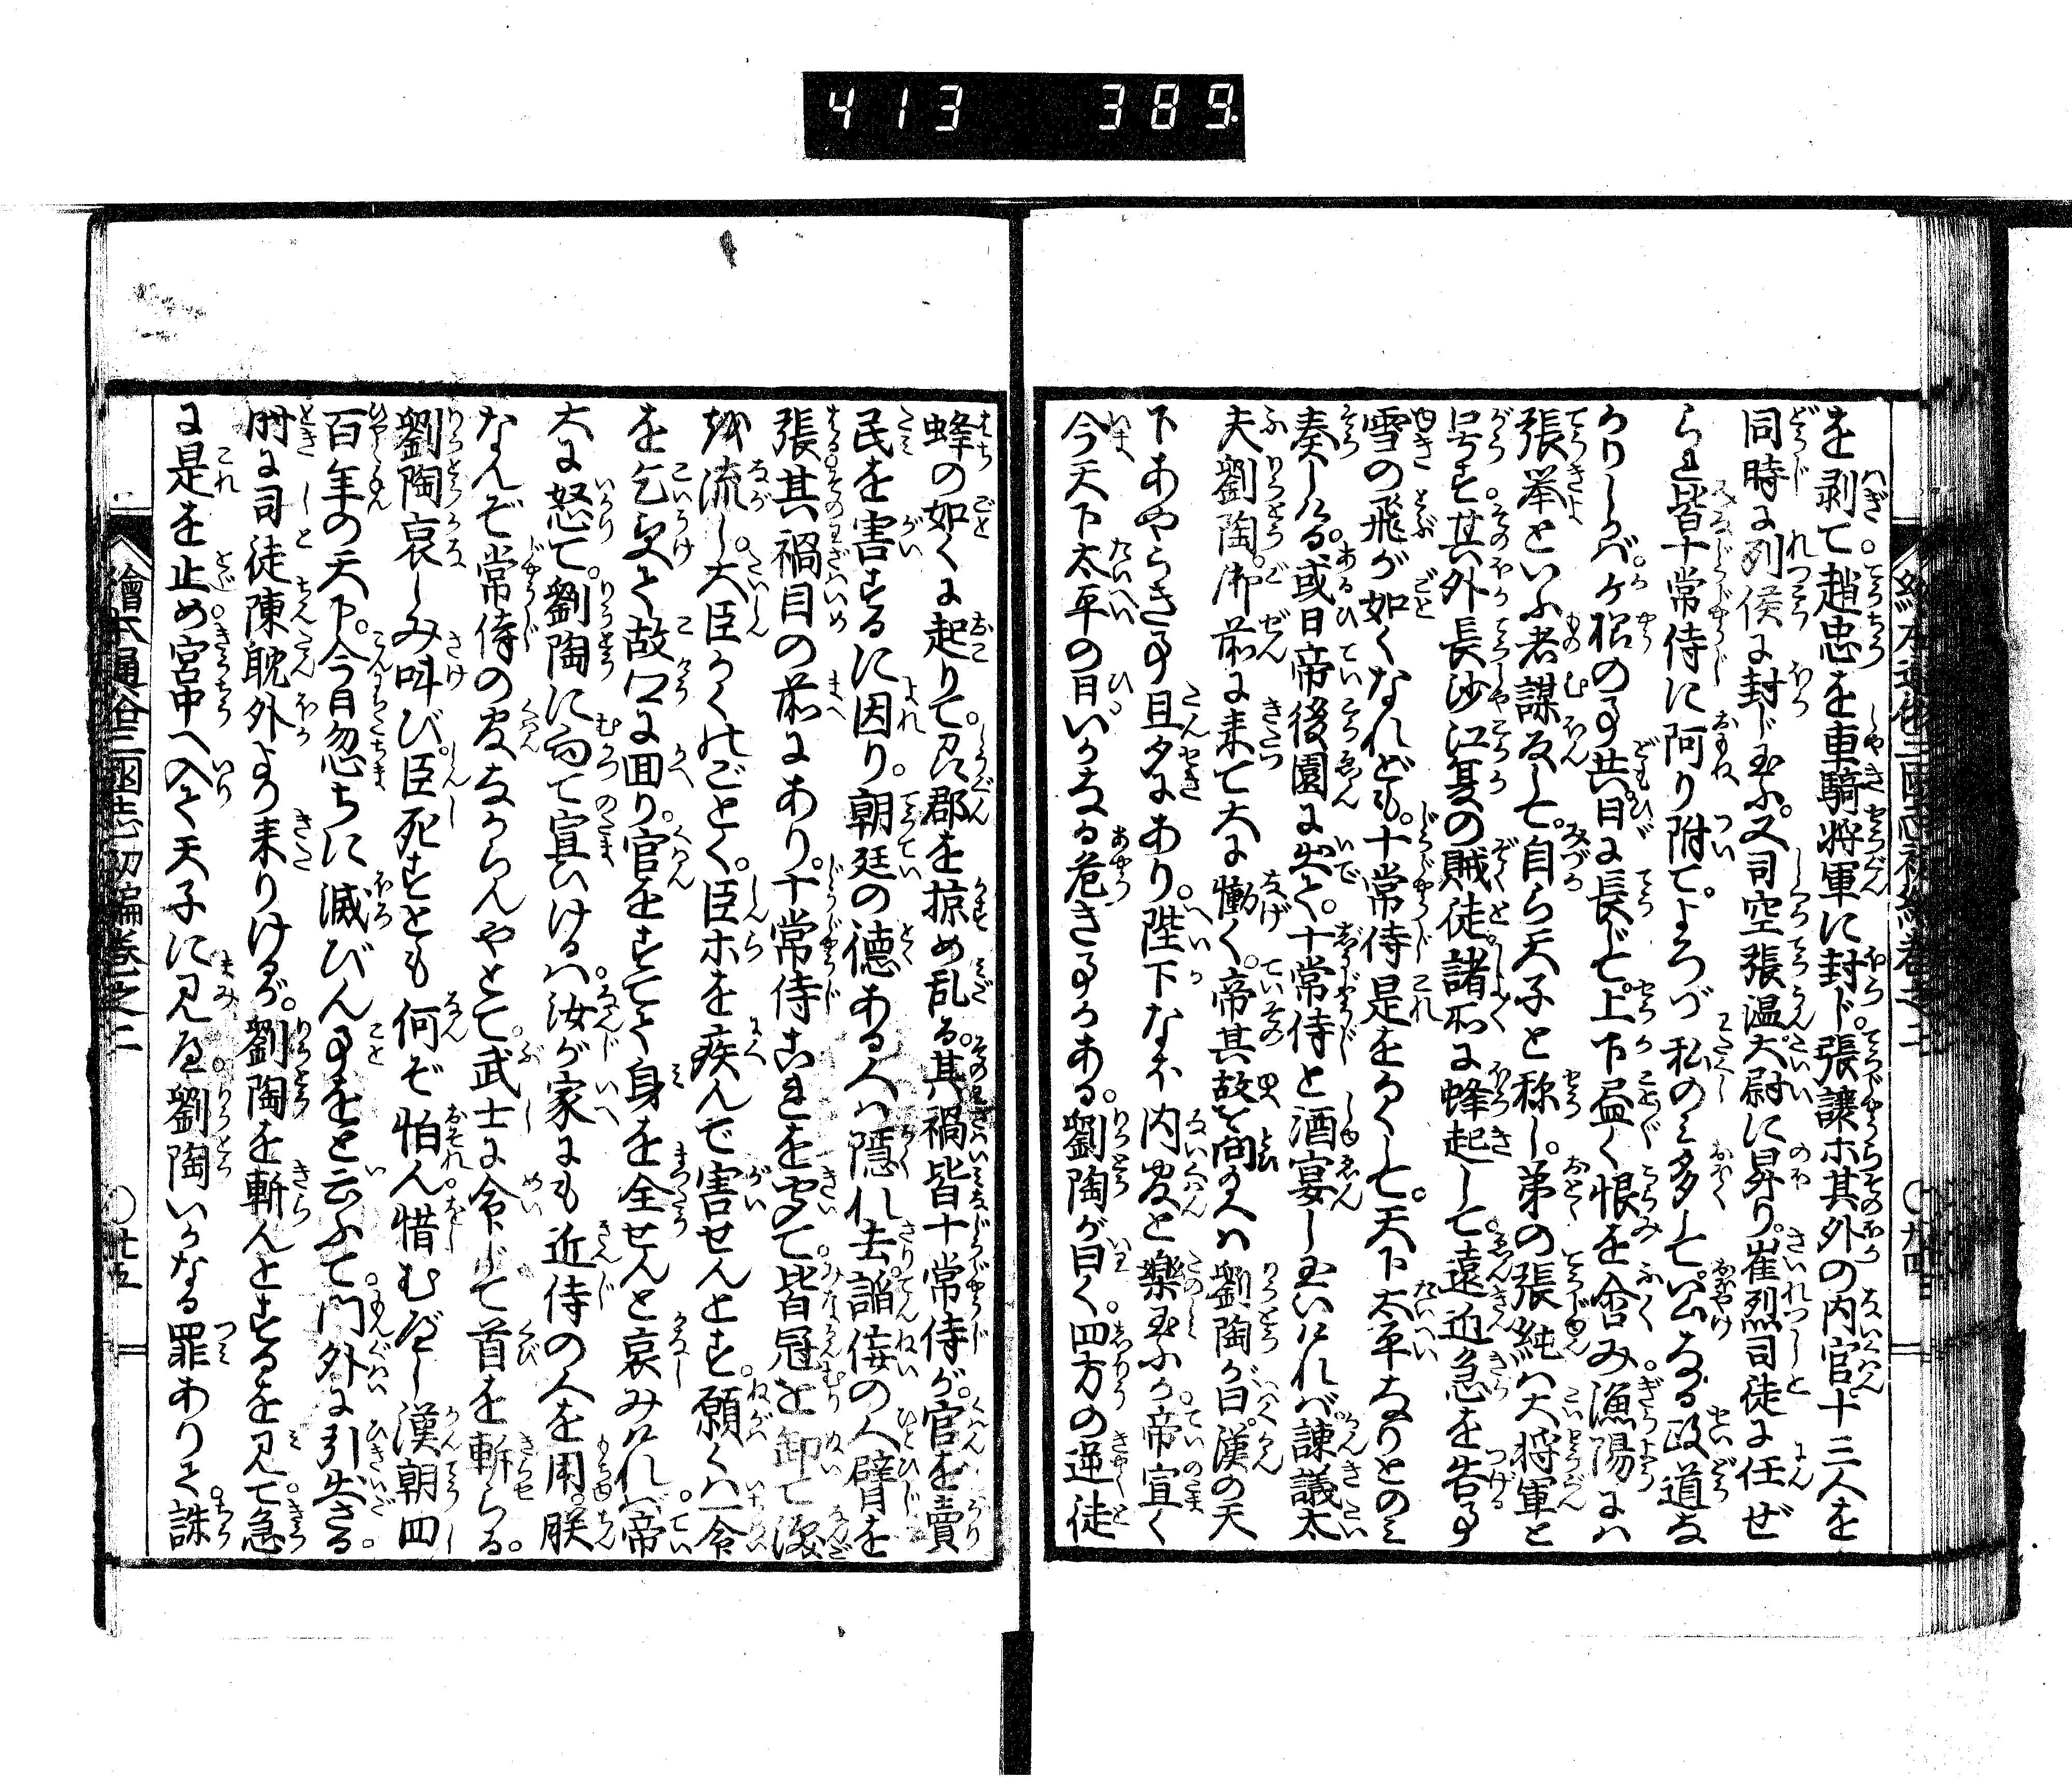 413 389
を剥て。趙忠を車騎将軍に封ド。張譲ホ其外の内官十三人を
同時に列侯に封ド玉ふ。又司空張温大尉に昇り。崔烈司徒に任ぜ
らる皆十常侍に阿り附て。よろづ私のミ多して。公なる政道な
かりしかバ。ケ様の事共。日に長どて。上下尽く恨を含み。漁陽にハ
張挙といふ者謀反して。自ら天子と称し。弟の張純ハ大将軍と
号す。其外長沙江夏の賊徒。諸所に蜂起して。遠近急を告る事
雪の飛が如くなれども。十常侍是をかくして。天下太平なりとのミ
奏しける。或日帝後園に出て。十常侍と酒宴し玉いけれバ。諌議太
夫劉陶。御前に来て大に慟く。帝其故を問玉へハ劉陶が曰。漢の天
下あやうき事旦夕にあり。陛下なホ内官と楽玉ふか。帝宣く
今天下太平の日。いかなる危き事かある。劉陶が曰く。四方の逆徒
蜂の如くに起りて。州郡を掠め乱る。其禍皆十常侍が。官を賣
民を害するに因り。朝廷の徳ある人ハ隠れ去。諂侫の人臂を
張。其禍目の前にあり。十常侍これを聞て。皆冠を卸て涙
を流し。大臣かくのごとく。臣ホを疾んで害せんとす。願くハ一命
を乞受て故郷に回り。官をすてゝ身を全せんと哀みけれハ。帝
大に怒て。劉陶に向て宣ひけるハ。汝が家にも近侍の人を用。朕
なんぞ常侍の官なからんやとて。武士に命じて首を斬らる。
劉陶哀しみ叫び。臣死すとも何ぞ怕ん。惜むべし漢朝四
百年の天下。今日忽ちに滅びん事をと云ふて。門外に引出さる。
時に司徒陳耽外より来りけるが。劉陶を斬んとするを見て。急
に是を止め。宮中へ入て天子に見え。劉陶いかなる罪ありて。誅
繪本通俗三國志初編巻之二
〇廿五